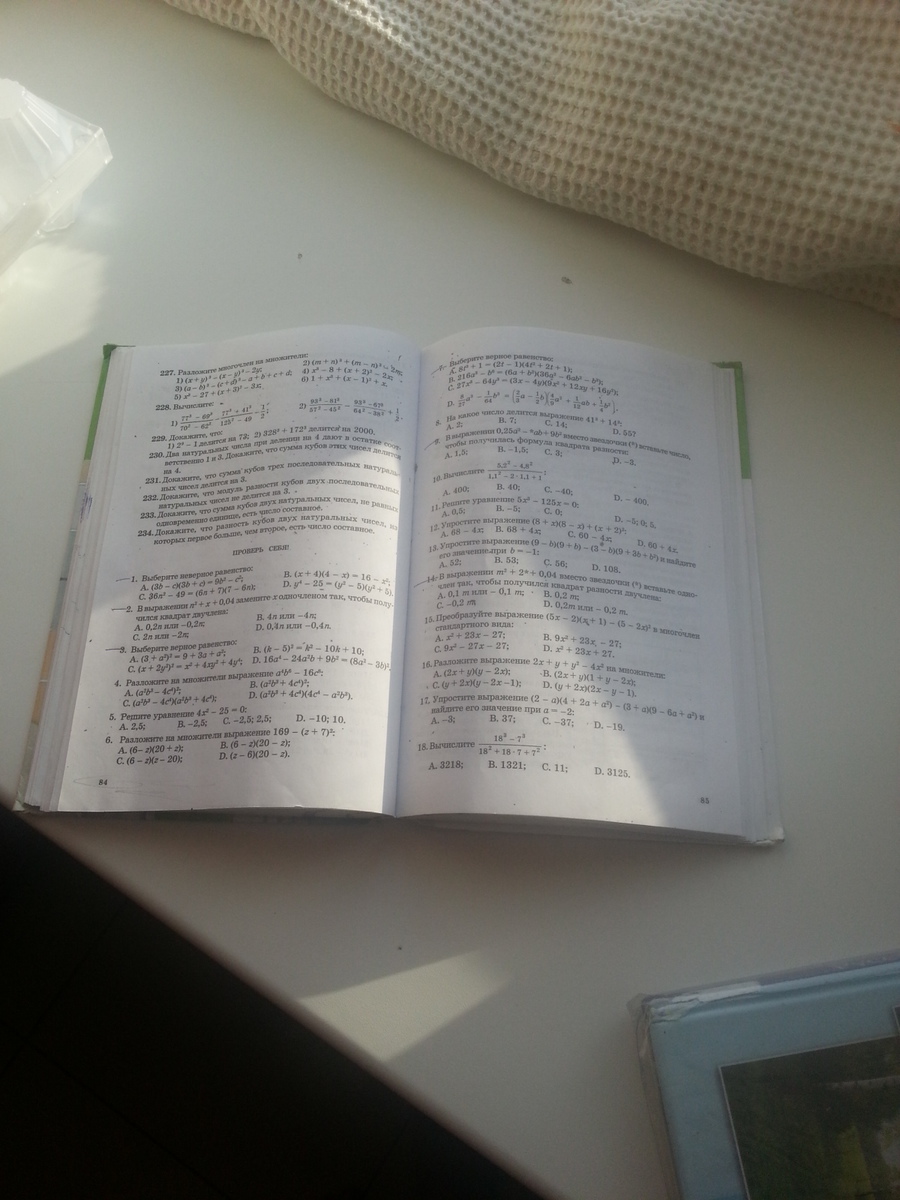 227. Разложите многочлен на множители:
1) (x + y)³ − (x − y)³ − 2y; 2) (m + n)³ + (m − n)³ − 2m;
3) (a − b)³ − (c + d)³ − a + b + c + d; 4) x³ − 8 + (x + 2)² − 2x;
5) x³ − 27 + (x + 3)² − 3x; 6) 1 + x³ + (x − 1)² + x.
228. Вычислите:
229. Докажите, что:
1) 2⁹ − 1 делится на 73; 2) 328³ + 172³ делится на 2000.
230. Два натуральных числа при делении на 4 дают в остатке соот-
ветственно 1 и 3. Докажите, что сумма кубов этих чисел делится
на 4.
231. Докажите, что сумма кубов трех последовательных натураль-
ных чисел делится на 3.
232. Докажите, что модуль разности кубов двух последовательных
натуральных чисел не делится на 3.
233. Докажите, что сумма кубов двух натуральных чисел, не равных
одновременно единице, есть число составное.
234. Докажите, что разность кубов двух натуральных чисел, из
которых первое больше, чем второе, есть число составное.
ПРОВЕРЬ СЕБЯ!
1. Выберите неверное равенство:
A. (3b − c)(3b + c) = 9b² − c²; B. (x + 4)(4 − x) = 16 − x²;
C. 36n² − 49 = (6n + 7)(7 − 6n); D. y⁴ − 25 = (y² − 5)(y² + 5).
2. В выражении n² + x + 0,04 замените x одночленом так, чтобы полу-
чился квадрат двучлена:
A. 0,2n или −0,2n; B. 4n или −4n;
C. 2n или −2n; D. 0,4n или −0,4n.
3. Выберите верное равенство:
A. (3 + a²)² = 9 + 3a + a²; B. (k − 5)² = k² − 10k + 10;
C. (x + 2y²)² = x² + 4xy² + 4y⁴; D. 16a⁴ − 24a²b + 9b² = (8a² − 3b)².
4. Разложите на множители выражение a⁴b⁶ − 16c⁸:
A. (a²b³ − 4c⁴)²; B. (a²b³ + 4c⁴)²;
C. (a²b³ − 4c⁴)(a²b³ + 4c⁴); D. (a²b³ + 4c⁴)(4c⁴ − a²b³).
5. Решите уравнение 4x² − 25 = 0:
A. 2,5; B. −2,5; C. −2,5; 2,5; D. −10; 10.
6. Разложите на множители выражение 169 − (z + 7)²:
A. (6 − z)(20 + z); B. (6 − z)(20 − z);
C. (6 − z)(z − 20); D. (z − 6)(20 − z).
84
7. Выберите верное равенство:
A. 8t³ + 1 = (2t − 1)(4t² + 2t + 1);
C. 27x³ − 64y³ = (3x − 4y)(9x² + 12xy + 16y²);
8. На какое число делится выражение 41³ + 14³:
A. 2; B. 7; C. 14; D. 55?
В выражении 0,25a² − *ab + 9b² вместо звездочки (*) вставьте число,
чтобы получилась формула квадрата разности:
A. 1,5; B. −1,5; C. 3; D. −3.
10. Вычислите
A. 400; B. 40; C. −40; D. −400.
11. Решите уравнение 5x² − 125x = 0:
A. 0,5; B. −5; C. 0; D. −5; 0; 5.
12. Упростите выражение (8 + x)(8 − x) + (x + 2)²:
A. 68 − 4x; B. 68 + 4x; C. 60 − 4x; D. 60 + 4x.
13. Упростите выражение (9 − b)(9 + b) − (3 − b)(9 + 3b + b²) и найдите
его значение при b = −1:
A. 52; B. 53; C. 56; D. 108.
14. В выражении m² + 2* + 0,04 вместо звездочки (*) вставьте одно-
член так, чтобы получился квадрат разности двучлена:
A. 0,1 m или − 0,1 m; B. 0,2 m;
C. −0,2 m; D. 0,2m или − 0,2 m.
15. Преобразуйте выражение (5x − 2)(x + 1) − (5 − 2x)² в многочлен
стандартного вида:
A. x² + 23x − 27; B. 9x² + 23x − 27;
C. 9x² − 27x − 27; D. x² + 23x + 27.
16. Разложите выражение 2x + y + y² − 4x² на множители:
A. (2x + y)(y − 2x); B. (2x + y)(1 + y − 2x);
C. (y + 2x)(y − 2x −1); D. (y + 2x)(2x − y − 1).
17. Упростите выражение (2 − a)(4 + 2a + a²) − (3 + a)(9 − 6a + a²) и
найдите его значение при a = −2:
A. −3; B. 37; C. −37; D. −19.
18. Вычислите (18³ − 7³)/(18² + 18 · 7 + 7²);
A. 3218; B. 1321; C. 11; D. 3125.
85